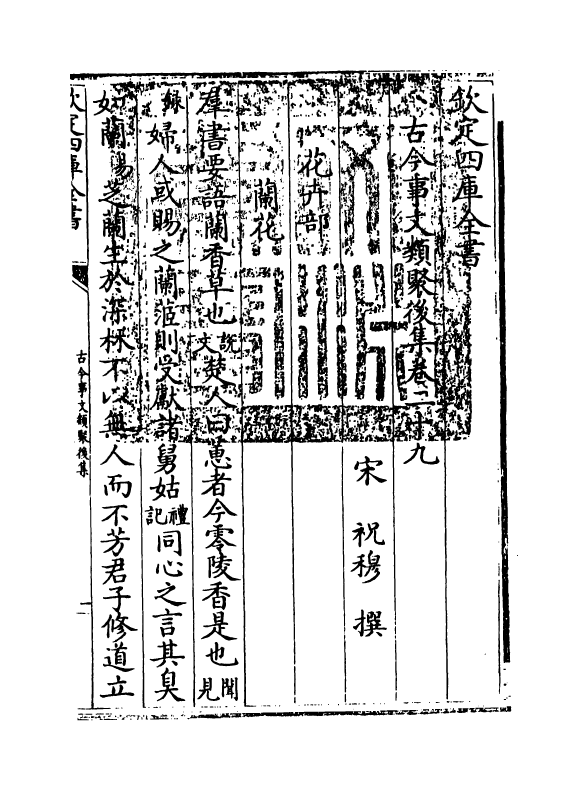 欽定四庫全書
古今事文類聚後集卷二十九
宋 祝穆 撰
花卉部
蘭花
羣書要語蘭香草也説文焚人曰蕙者今零陵香是也聞見
錄婦人或賜之蘭茝則受獻諸舅姑禮記同心之言其臭
如蘭易芝蘭生於深林不以無人而不芳君子修道立
欽定四庫全書
古今事文類聚後集
一